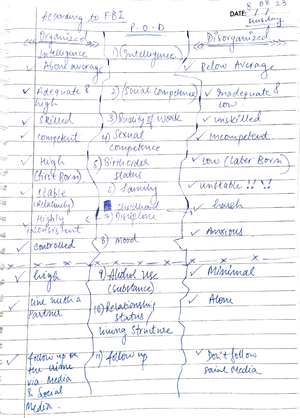 According to FBI
DATE: 8/08/23
Sunday
P.O.D
Organized
Disorganized
Intelligence
Above average
1) (Intelligence)
Below Average
Adequate &
high
2) (Social competence)
Inadequate &
low
Skilled
3) Quality of Work
unskilled
competent
4) Sexual
competence
incompetent
High
(First Born)
5) Birth order
status
low (Later Born)
Stable
(Relatively)
6) Family
unstable!!
Highly
consistent
childhood
7) Discipline
harsh
controlled
8) Mood
Anxious.
high
9) Alcohol Use
(substance)
Minimal
live with a
Partner
10) Relationship
status/
living structure
Alone
follow up on
the crime
via Media
& Social
Media.
11) follow up
Don't follow
social Media